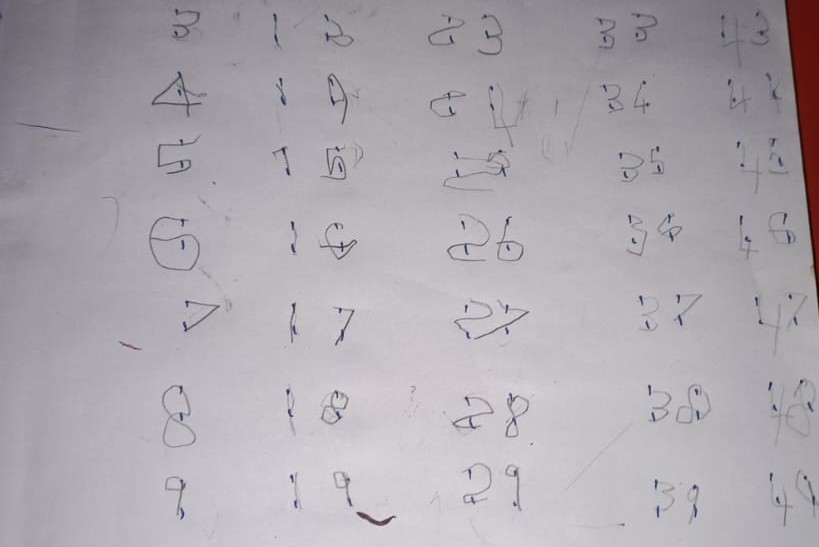 3 13 23 33 43
4 14 24 34 44
5 15 25 35 45
6 16 26 36 46
7 17 27 37 47
8 18 28 38 48
9 19 29 39 49